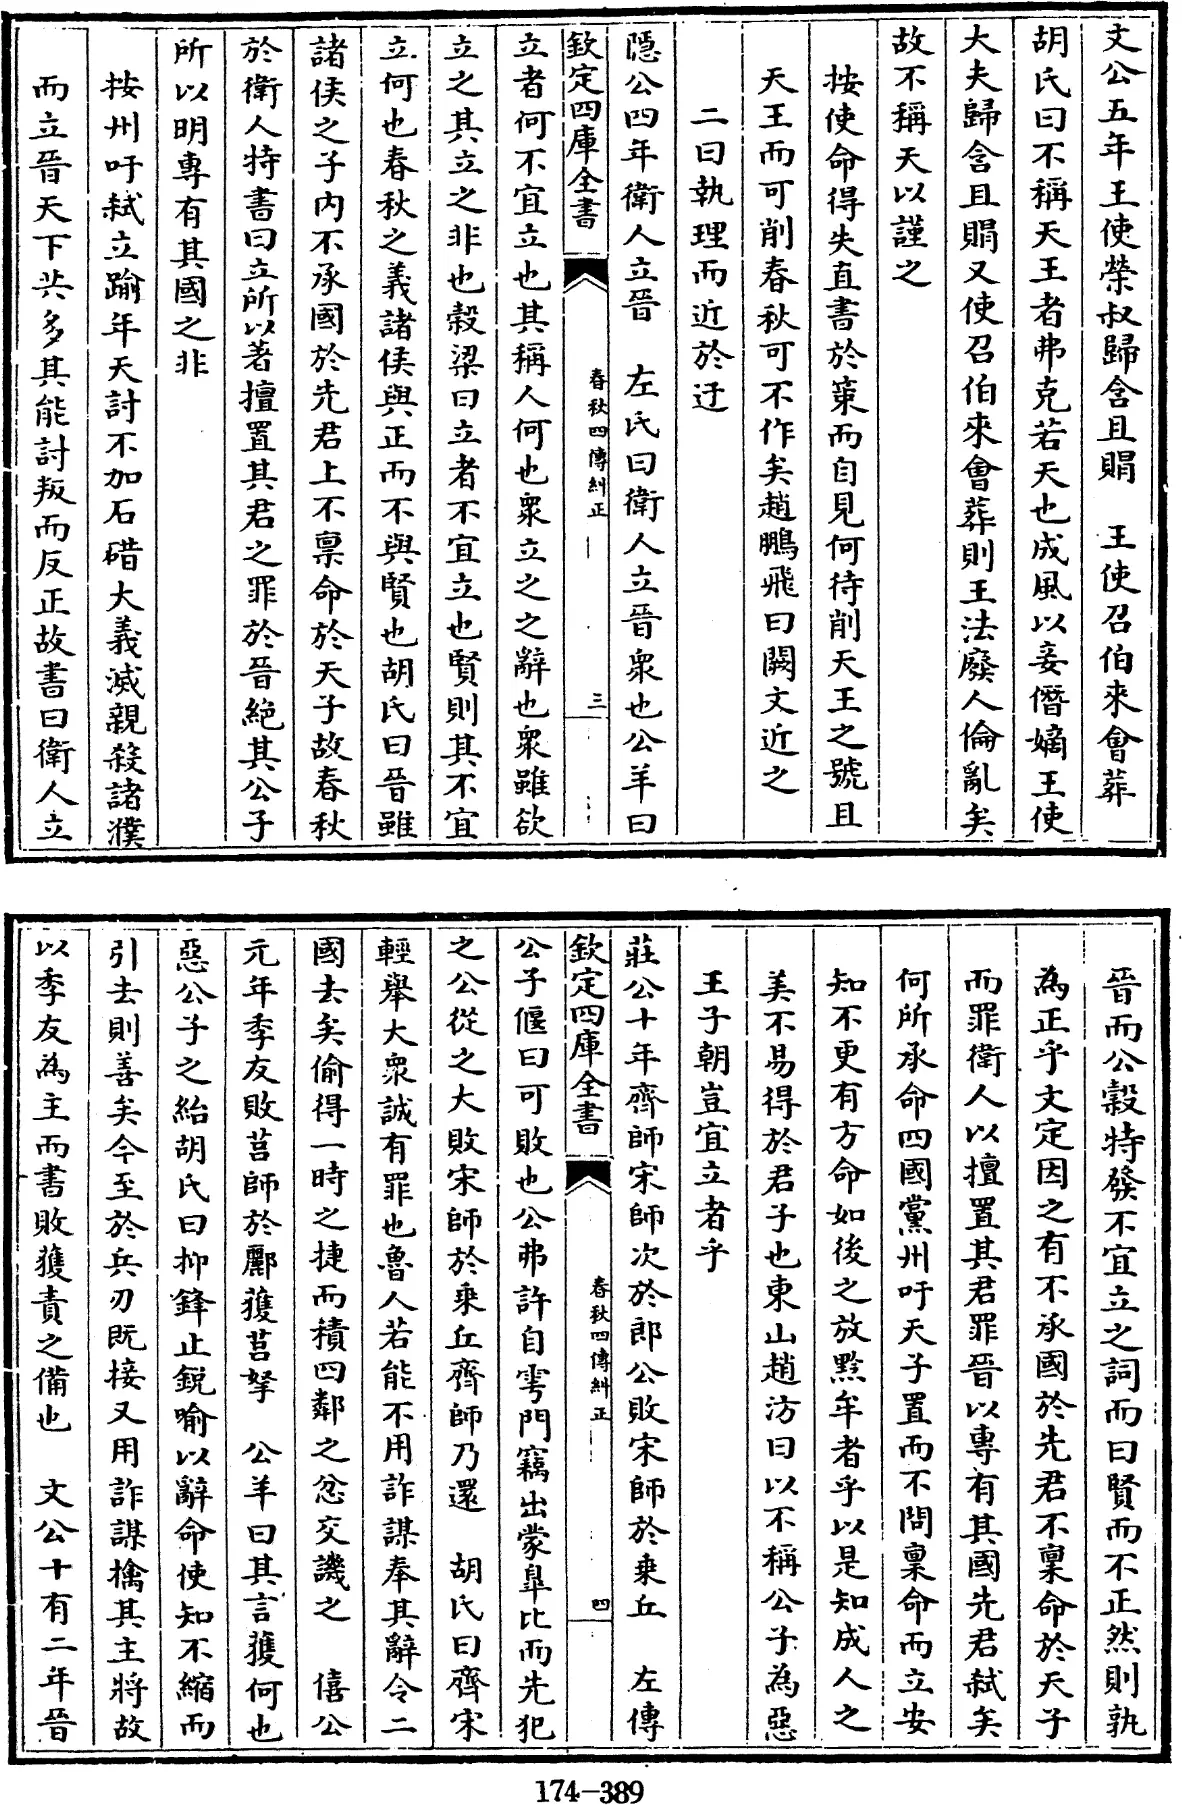 文公五年王使榮叔歸含且賵　王使召伯來會葬
胡氏曰不稱天王者弗克若天也成風以妾僭嫡王使
大夫歸含且賵又使召伯來會葬則王法廢人倫亂矣
故不稱天以謹之
按使命得失直書於策而自見何待削天王之號且
天王而可削春秋可不作矣趙鵬飛曰闕文近之
二曰執理而近於迂
隱公四年衛人立晉　左氏曰衛人立晉衆也公羊曰
欽定四庫全書　春秋四傳糾正　三
立者何不宜立也其稱人何也衆立之之辭也衆雖欲
立之其立之非也穀梁曰立者不宜立也賢則其不宜
立何也春秋之義諸侯與正而不與賢也胡氏曰晉雖
諸侯之子內不承國於先君上不禀命於天子故春秋
於衛人特書曰立所以著擅置其君之罪於晉絶其公子
所以明専有其國之非
按州吁弑立踰年天討不加石碏大義滅親殺諸濮
而立晉天下共多其能討叛而反正故書曰衛人立
晉而公穀特發不宜立之詞而曰賢而不正然則孰
為正乎文定因之有不承國於先君不禀命於天子
而罪衛人以擅置其君罪晉以專有其國先君弑矣
何所承命四國黨州吁天子置而不問禀命而立安
知不更有方命如後之放黔牟者乎以是知成人之
美不易得於君子也東山趙汸曰以不稱公子為惡
王子朝豈宜立者乎
莊公十年齊師宋師次於郎公敗宋師於乗丘　左傳
欽定四庫全書　春秋四傳糾正　四
公子偃曰可敗也公弗許自雩門竊出蒙臯比而先犯
之公從之大敗宋師於乗丘齊師乃還　胡氏曰齊宋
輕舉大衆誠有罪也魯人若能不用詐謀奉其辭令二
國去矣偷得一時之捷而積四鄰之忿交譏之　僖公
元年季友敗莒師於酈獲莒挐　公羊曰其言獲何也
惡公子之紿胡氏曰抑鋒止銳喻以辭命使知不縮而
引去則善矣今至於兵刃既接又用詐謀擒其主將故
以季友為主而書敗獲責之備也　文公十有二年晉
174-389